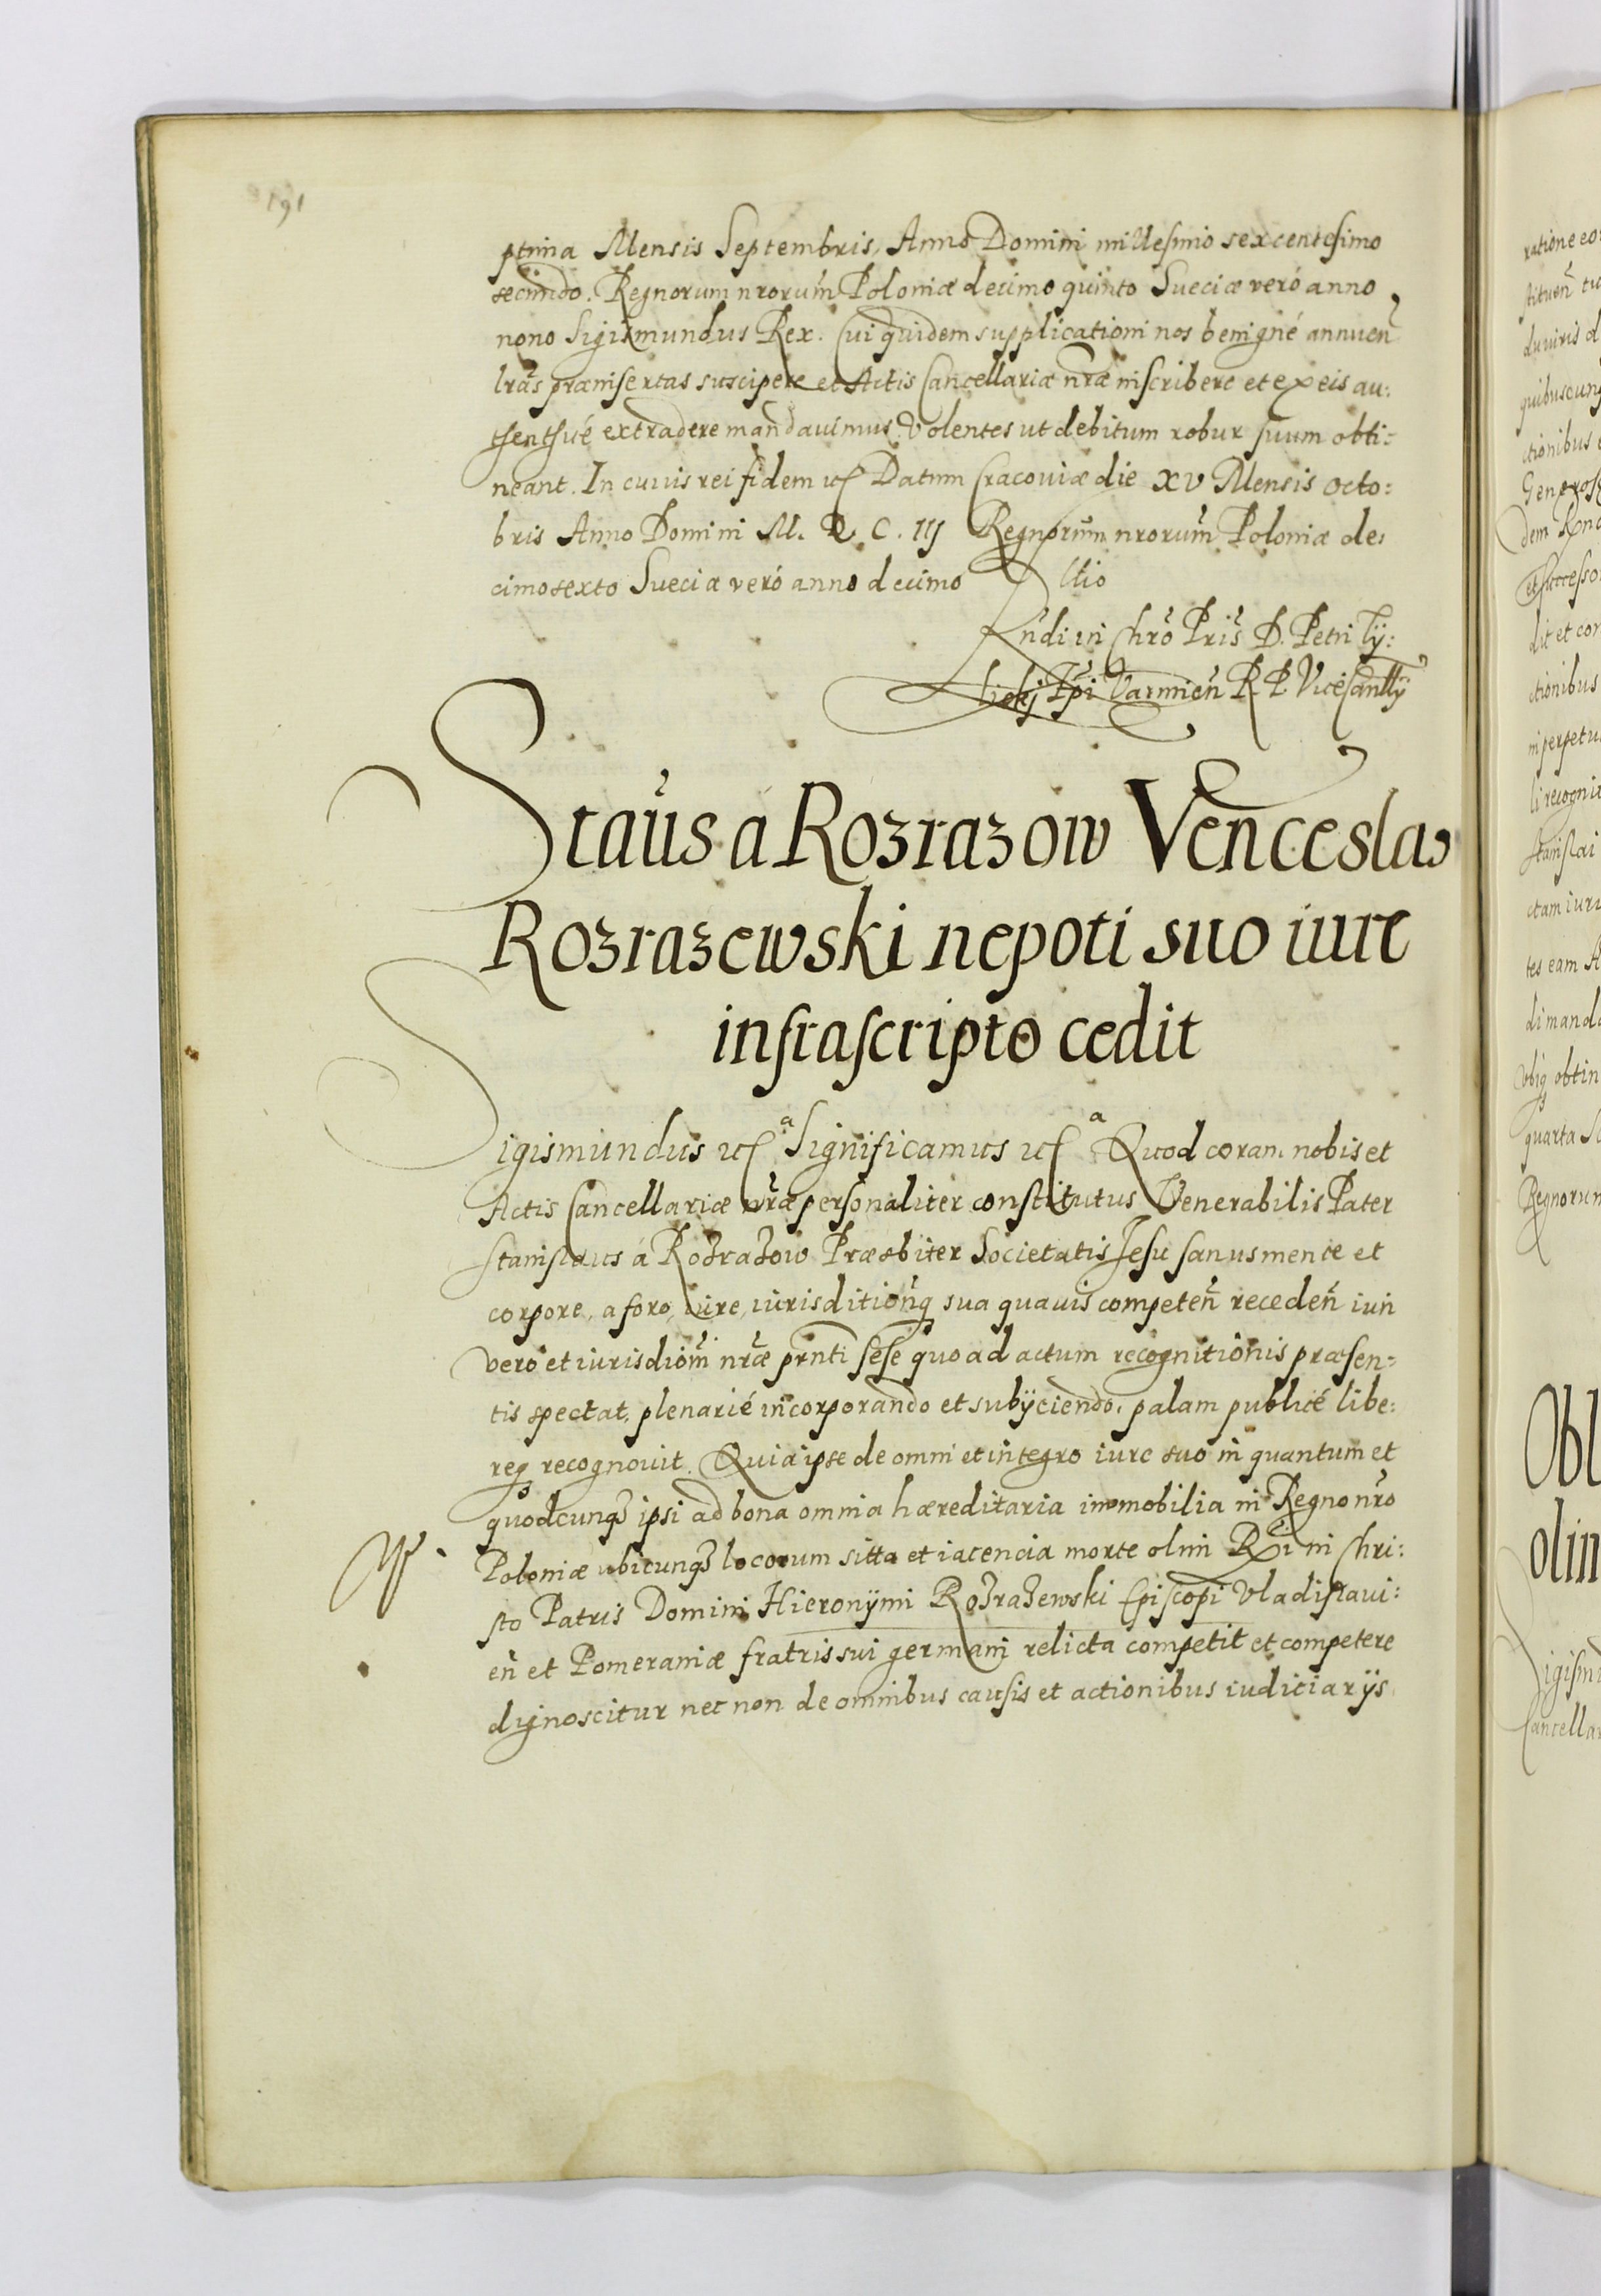 191
ptima Mensis Septembris, Anno Domini millesimo sexcentesimo
secundo. Regnorum nrorum Poloniæ decimo quinto Sueciæ veró anno
nono Sigismundus Rex. Cui quidem supplicationi nos benigné annuen
lras præinsertas suscipere et Actis Cancellariæ nræ inscribere et ex eis au:
thenthicé extradere mandavimus. Volentes ut debitum robur suum obti:
neant. In cuius rei fidem etc Datum Cracoviæ die XV Mensis Octo:
bris Anno Domini M. D. C. IIJ Regnorum nrorum Poloniæ de:
cimosexto Sueciæ veró anno decimo
Rndi in Chro Pris D. Petri Ty:
licki Epi Varmien R. P. Vicecanllrÿ
Staus a Rozrazow Venceslao
Rozrazewski nepoti suo iure
infrascripto cedit
Sigismundus etc a Significamus etc a Quod coram nobis et
Actis Cancellariæ nræ personaliter constitutus Venerabilis Pater
Stanislaus á Rozrazow Præsbiter Societatis Jesu sanus mente et
corpore, a foro, iure, iurisditionq sua quavis competen receden iuri
vero et iurisdiom nræ prnti sese quo ad actum recognitionis præsen:
tis spectat, plenarié incorporando et subÿciendo, palam publicé libe:
req recognovit. Quia ipse de omni et integro iure suo in quantum et
quodcunq ipsi ad bona omnia hæreditaria immobilia in Regno nro
Poloniæ ubicunq locorum sitta et iacencia morte olim Rdi in Chri:
sto Patris Domini Hieronÿmi Rozrazewski Episcopi Vladislavi:
en et Pomeraniæ fratris sui germani relicta competit et competere
dignoscitur nec non de omnibus causis et actionibus iuditiarÿs
ratione eo
quibuscunq
ctionibus
dit et con
ctionibus
in perpetu
li recognit
Stanislai
ctam iuri
tes eam
di mand
ubiq obtin
quarta
Regnorum
Obl
olim
Sigism
Cancella